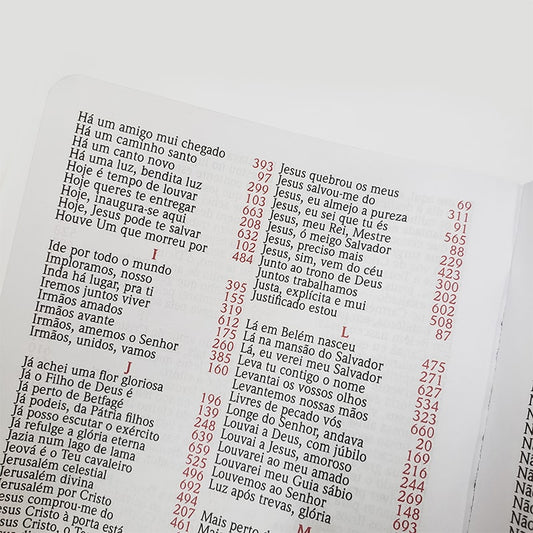 Há um amigo mui chegado 393
Há um caminho santo 97
Há um canto novo 299
Há uma luz, bendita luz 103
Hoje é tempo de louvar 663
Hoje queres te entregar 208
Hoje, inaugura-se aqui 632
Hoje, Jesus pode te salvar 102
Houve Um que morreu por 484
I
Ide por todo o mundo 395
Imploramos, nosso 155
Inda há lugar, pra ti 319
Iremos juntos viver 612
Irmãos amados 175
Irmãos avante 260
Irmãos, amemos o Senhor 385
Irmãos, unidos, vamos 160
J
Já achei uma flor gloriosa 196
Já o Filho de Deus é 139
Já perto de Betfagé 248
Já podeis, da Pátria filhos 639
Já posso escutar o exército 659
Já refulge a glória eterna 525
Jazia num lago de lama 496
Jeová é o Teu cavaleiro 692
Jerusalém celestial 494
Jerusalém divina 207
Jerusalém por Cristo 461
Jesus comprou-me do
Jesus Cristo à porta está
Jesus Cristo, o
Jesus quebrou os meus 69
Jesus salvou-me do 311
Jesus, eu almejo a pureza 91
Jesus, eu sei que tu és 565
Jesus, meu Rei, Mestre 88
Jesus, ó meigo Salvador 229
Jesus, preciso mais 423
Jesus, sim, vem do céu 300
Junto ao trono de Deus 202
Juntos trabalhamos 602
Justa, explícita e mui 508
Justificado estou 87
L
Lá em Belém nasceu 475
Lá na mansão do Salvador 271
Lá, eu verei meu Salvador 627
Leva tu contigo o nome 534
Levantai os vossos olhos 323
Levantemos nossas mãos 666
Livres de pecado vós 20
Longe do Senhor, andava 169
Louvai a Deus, com júbilo 216
Louvai a Jesus, amoroso 244
Louvarei ao meu amado 269
Louvarei meu Guia sábio 148
Louvemos ao Senhor 693
Luz após trevas, glória
M
Mais perto